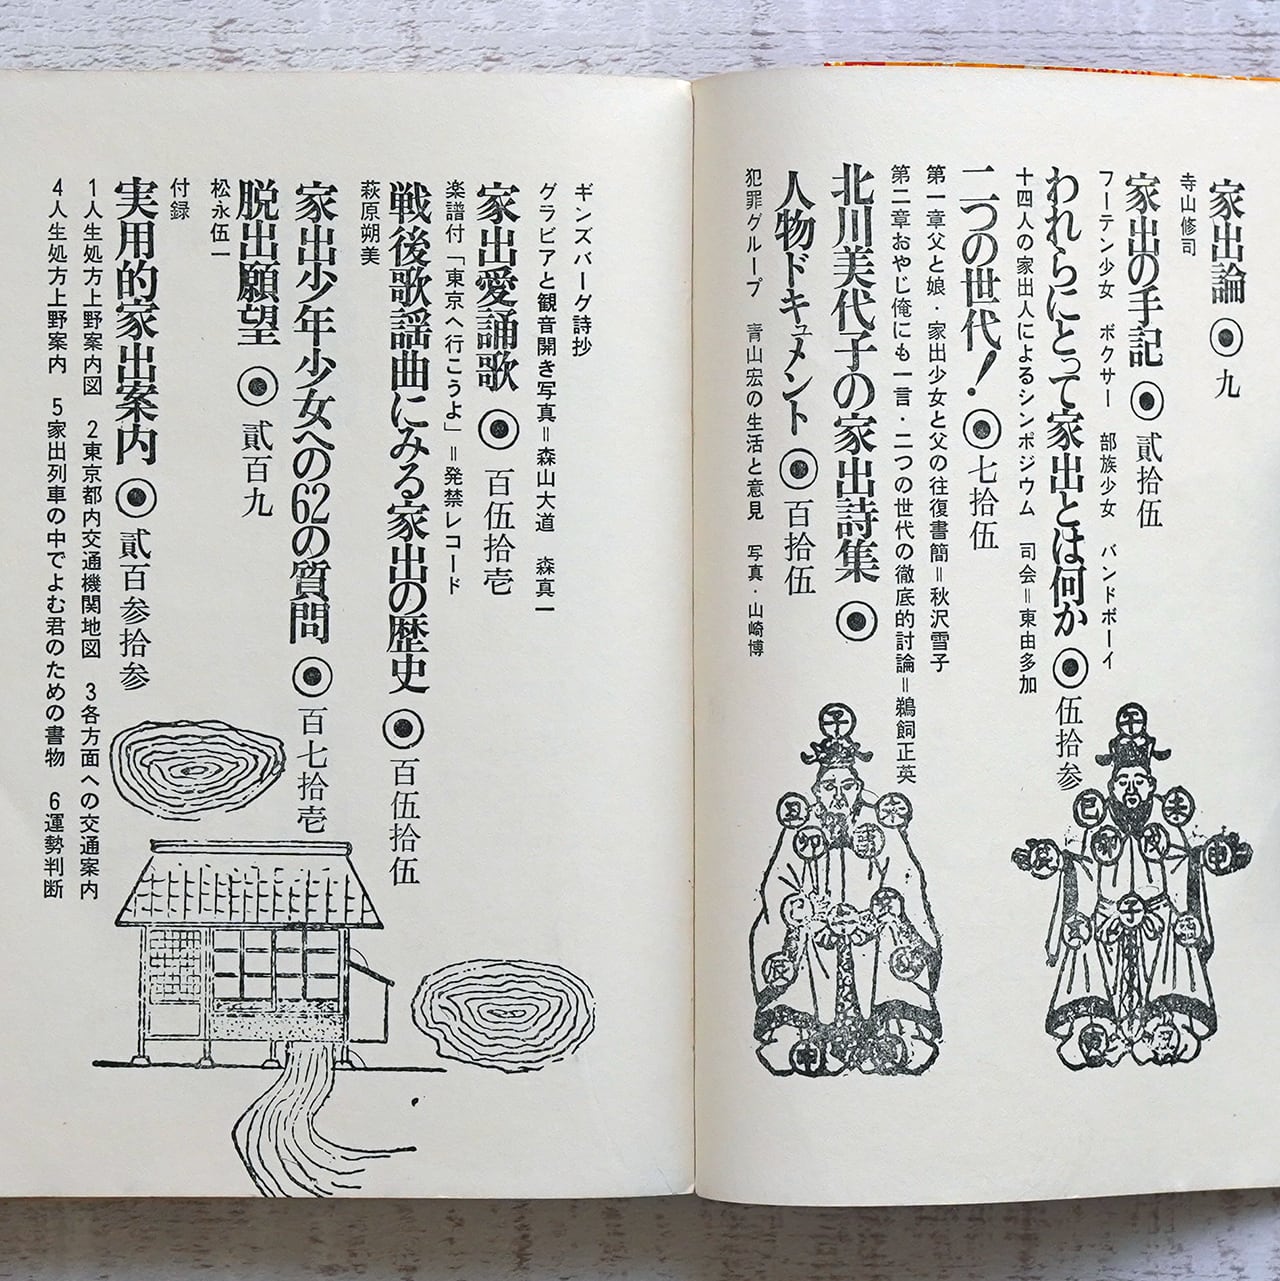 家出論◉九
寺山修司
家出の手記◉貳拾伍
フーテン少女　ボクサー　部族少女　バンドボーイ
われらにとって家出とは何か◉伍拾参
十四人の家出人によるシンポジウム　司会＝東由多加
二つの世代！◉七拾伍
第一章父と娘・家出少女と父の往復書簡＝秋沢雪子
第二章おやじ俺にも一言・二つの世代の徹底的討論＝鵜飼正英
北川美代子の家出詩集◉
人物ドキュメント◉百拾伍
犯罪グループ　青山宏の生活と意見　写真・山崎博
午
巳
未
卯
申
子
寅
子
丑
未
卯
辰
ギンズバーグ詩抄
グラビアと観音開き写真＝森山大道　森真一
家出愛誦歌◉百伍拾壱
楽譜付「東京へ行こうよ」＝発禁レコード
戦後歌謡曲にみる家出の歴史◉百伍拾伍
萩原朔美
家出少年少女への62の質問◉百七拾壱
脱出願望◉貳百九
松永伍一
付録
実用的家出案内◉貳百参拾参
1人生処方上野案内図　2東京都内交通機関地図　3各方面への交通案内
4人生処方上野案内　5家出列車の中でよむ君のための書物　6運勢判断